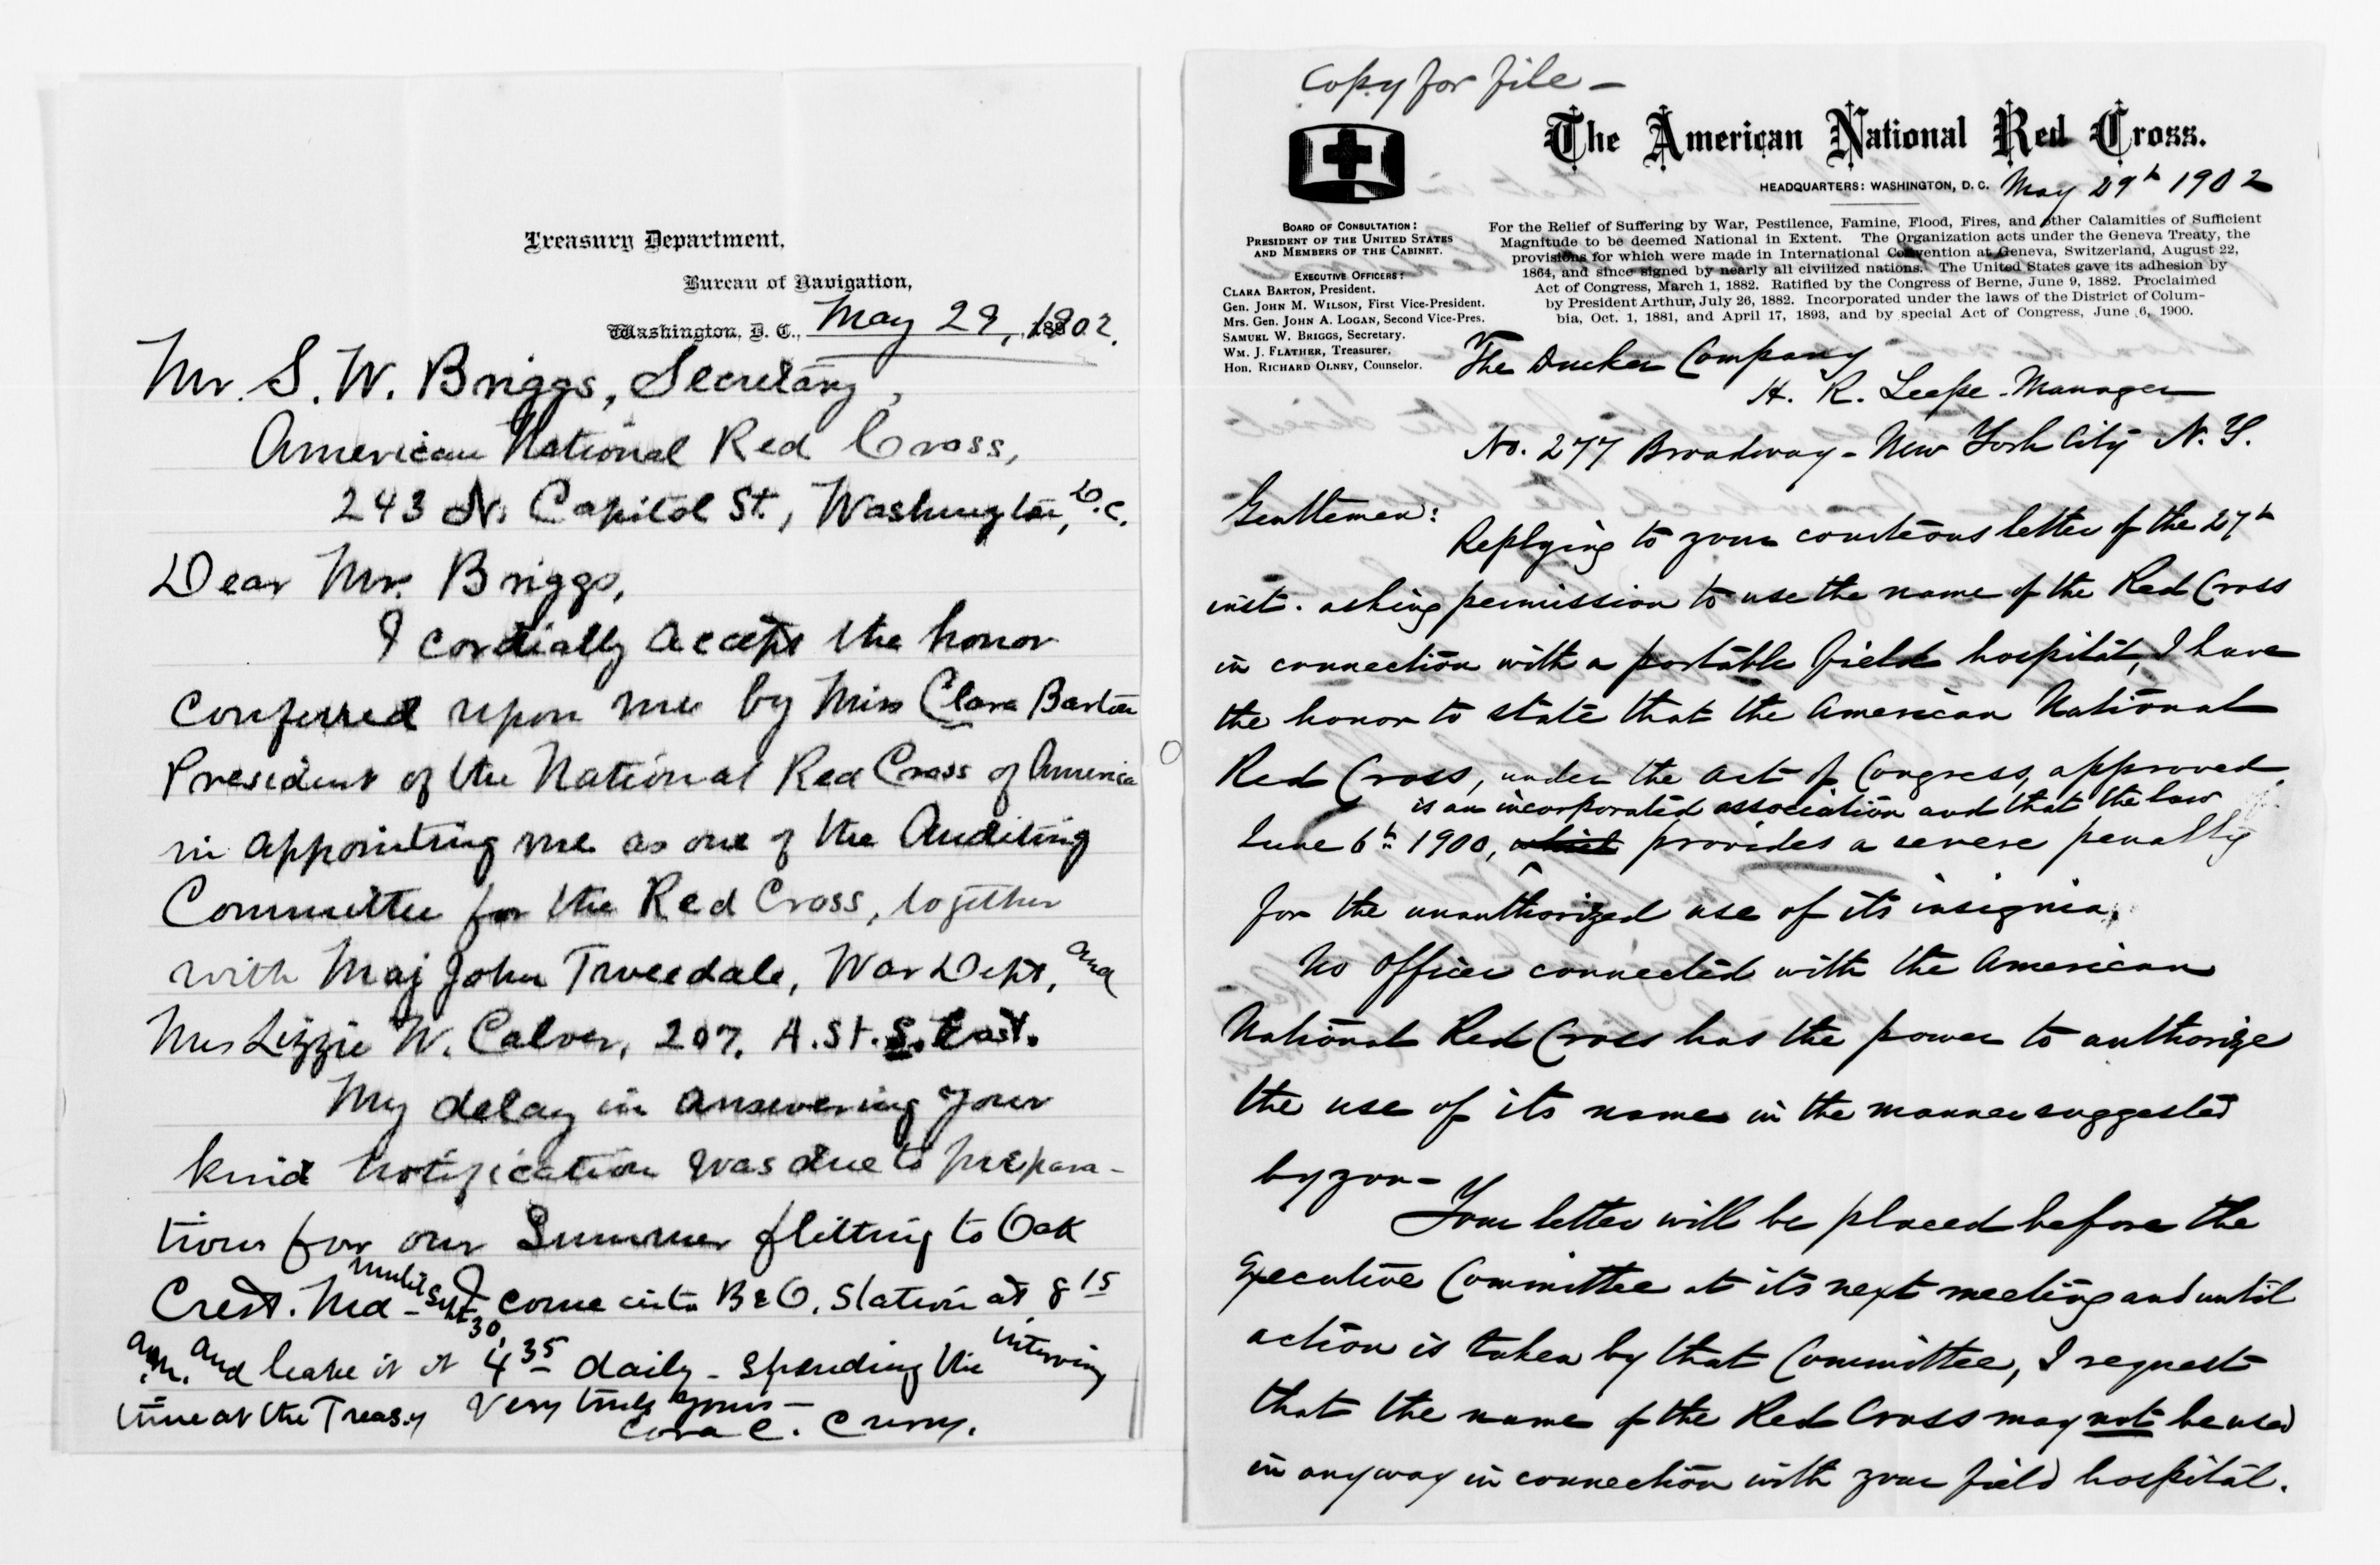 Treasury Department,
Bureau of Navigation,
Washington, D. C., May 29, 1902.
Mr. S. W. Briggs, Secretary,
American National Red Cross,
243 N. Capitol St, Washington, D.C.
Dear Mr. Briggs,
I cordially accept the honor
conferred upon me by Miss Clara Barton
President of the National Red Cross of America
in appointing me as one of the Auditing
Committee for the Red Cross, together
with Maj John Tweedale, War Dept, and
Mrs Lizzie W. Calver, 207. A. St. S. East.
My delay in answering your
kind notification was due to prepara-
tions for our Summer flitting to Oak
Crest. Md - until Sept 30, I come into B & O. Station at 8 15
a.m. and leave it at 4 35 daily - spending the intervening
time at the Treasy Very truly yours -
Cora C. Curry.
Copy for file -
The American National Red Cross.
HEADQUARTERS: WASHINGTON, D. C. May 29th 1902
BOARD OF CONSULTATION:
PRESIDENT OF THE UNITED STATES
AND MEMBERS OF THE CABINET.
EXECUTIVE OFFICERS:
CLARA BARTON, President.
Gen. JOHN M. WILSON, First Vice-President.
Mrs. Gen. JOHN A. LOGAN, Second Vice-Pres.
SAMUEL W. BRIGGS, Secretary.
WM. J. FLATHER, Treasurer.
Hon. RICHARD OLNEY, Counselor.
For the Relief of Suffering by War, Pestilence, Famine, Flood, Fires, and other Calamities of Sufficient
Magnitude to be deemed National in Extent. The Organization acts under the Geneva Treaty, the
provisions for which were made in International Convention at Geneva, Switzerland, August 22,
1864, and since signed by nearly all civilized nations. The United States gave its adhesion by
Act of Congress, March 1, 1882. Ratified by the Congress of Berne, June 9, 1882. Proclaimed
by President Arthur, July 26, 1882. Incorporated under the laws of the District of Colum-
bia, Oct. 1, 1881, and April 17, 1893, and by special Act of Congress, June 6, 1900.
The Ducker Company
H. R. Leepe - Manager
No. 277 Broadway - New York City N. Y.
Gentlemen:
Replying to your courteous letter of the 27th
inst. asking permission to use the name of the Red Cross
in connection with a portable field hospital, I have
the honor to state that the American National
Red Cross, under the act of Congress, approved
is an incorporated association and that the law
June 6th 1900, which provides a severe penalty
for the unauthorized use of its insignia.
No officer connected with the American
National Red Cross has the power to authorize
the use of its name in the manner suggested
by you -
Your letter will be placed before the
Executive Committee at its next meeting and until
action is taken by that Committee, I request
that the name of the Red Cross may not be used
in any way in connection with your field hospital.